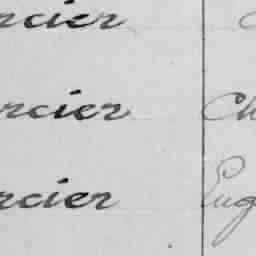 rcier
rcier Ch
rcier Eug